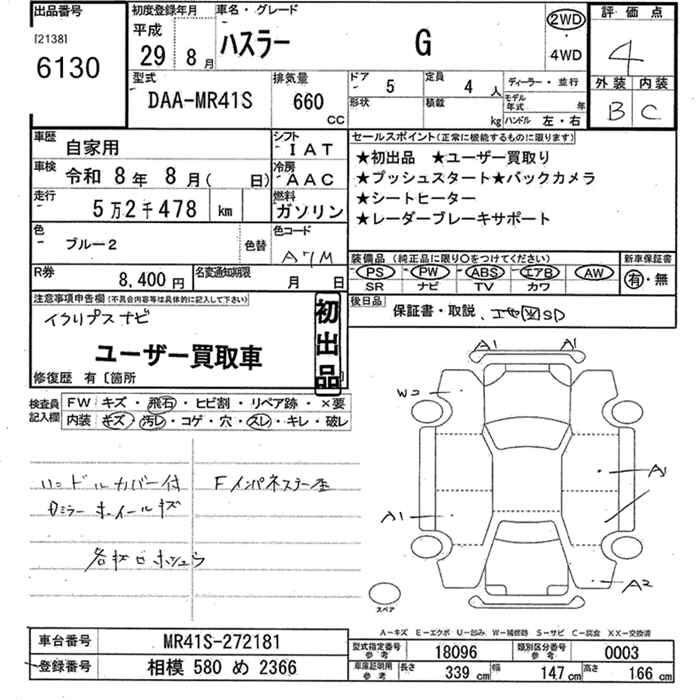 出品番号
[2138]
6130
初度登録年月
平成
29年 8月
車名・グレード
ハスラー G
2WD
・
4WD
評価点
4
外装 内装
B C
型式
DAA-MR41S
排気量
660 CC
ドア 5
形状
定員 4 人
積載 kg
ディーラー・並行
モデル年式 年
ハンドル 左・右
車歴 自家用
シフト IAT
車検 令和 8年 8月( 日)
冷房 AAC
走行 5万2千478 km
燃料 ガソリン
色 ブルー2 色替
色コード A7M
R券 8,400円
名変通知期限 月 日
セールスポイント(正常に機能するものに限ります)
★初出品 ★ユーザー買取り
★プッシュスタート★バックカメラ
★シートヒーター
★レーダーブレーキサポート
装備品 (純正品に限り○をつけてください)
PS PW ABS エアB AW
SR ナビ TV カワ
新車保証書
有・無
後日品
保証書・取説、 SD
注意事項申告欄(不具合内容等は具体的に記入して下さい)
イクリプスナビ
ユーザー買取車
初出品
修復歴 有〔箇所 〕
検査員記入欄
FW キズ・飛石・ヒビ割・リペア跡・×要
内装 キズ・汚レ・コゲ・穴・スレ・キレ・破レ
ハンドルカバー付
Fインパネステー歪
Dミラー ホイールキズ
A1 A1
W2
A1
A1
A2
スペア
A-キズ E-エクボ U-凹み W-補修跡 S-サビ C-腐食 XX-交換済
車台番号 MR41S-272181
登録番号 相模 580 め 2366
型式指定番号 参考 18096
類別区分番号 参考 0003
車庫証明用 参考 長さ 339 cm 幅 147 cm 高さ 166 cm